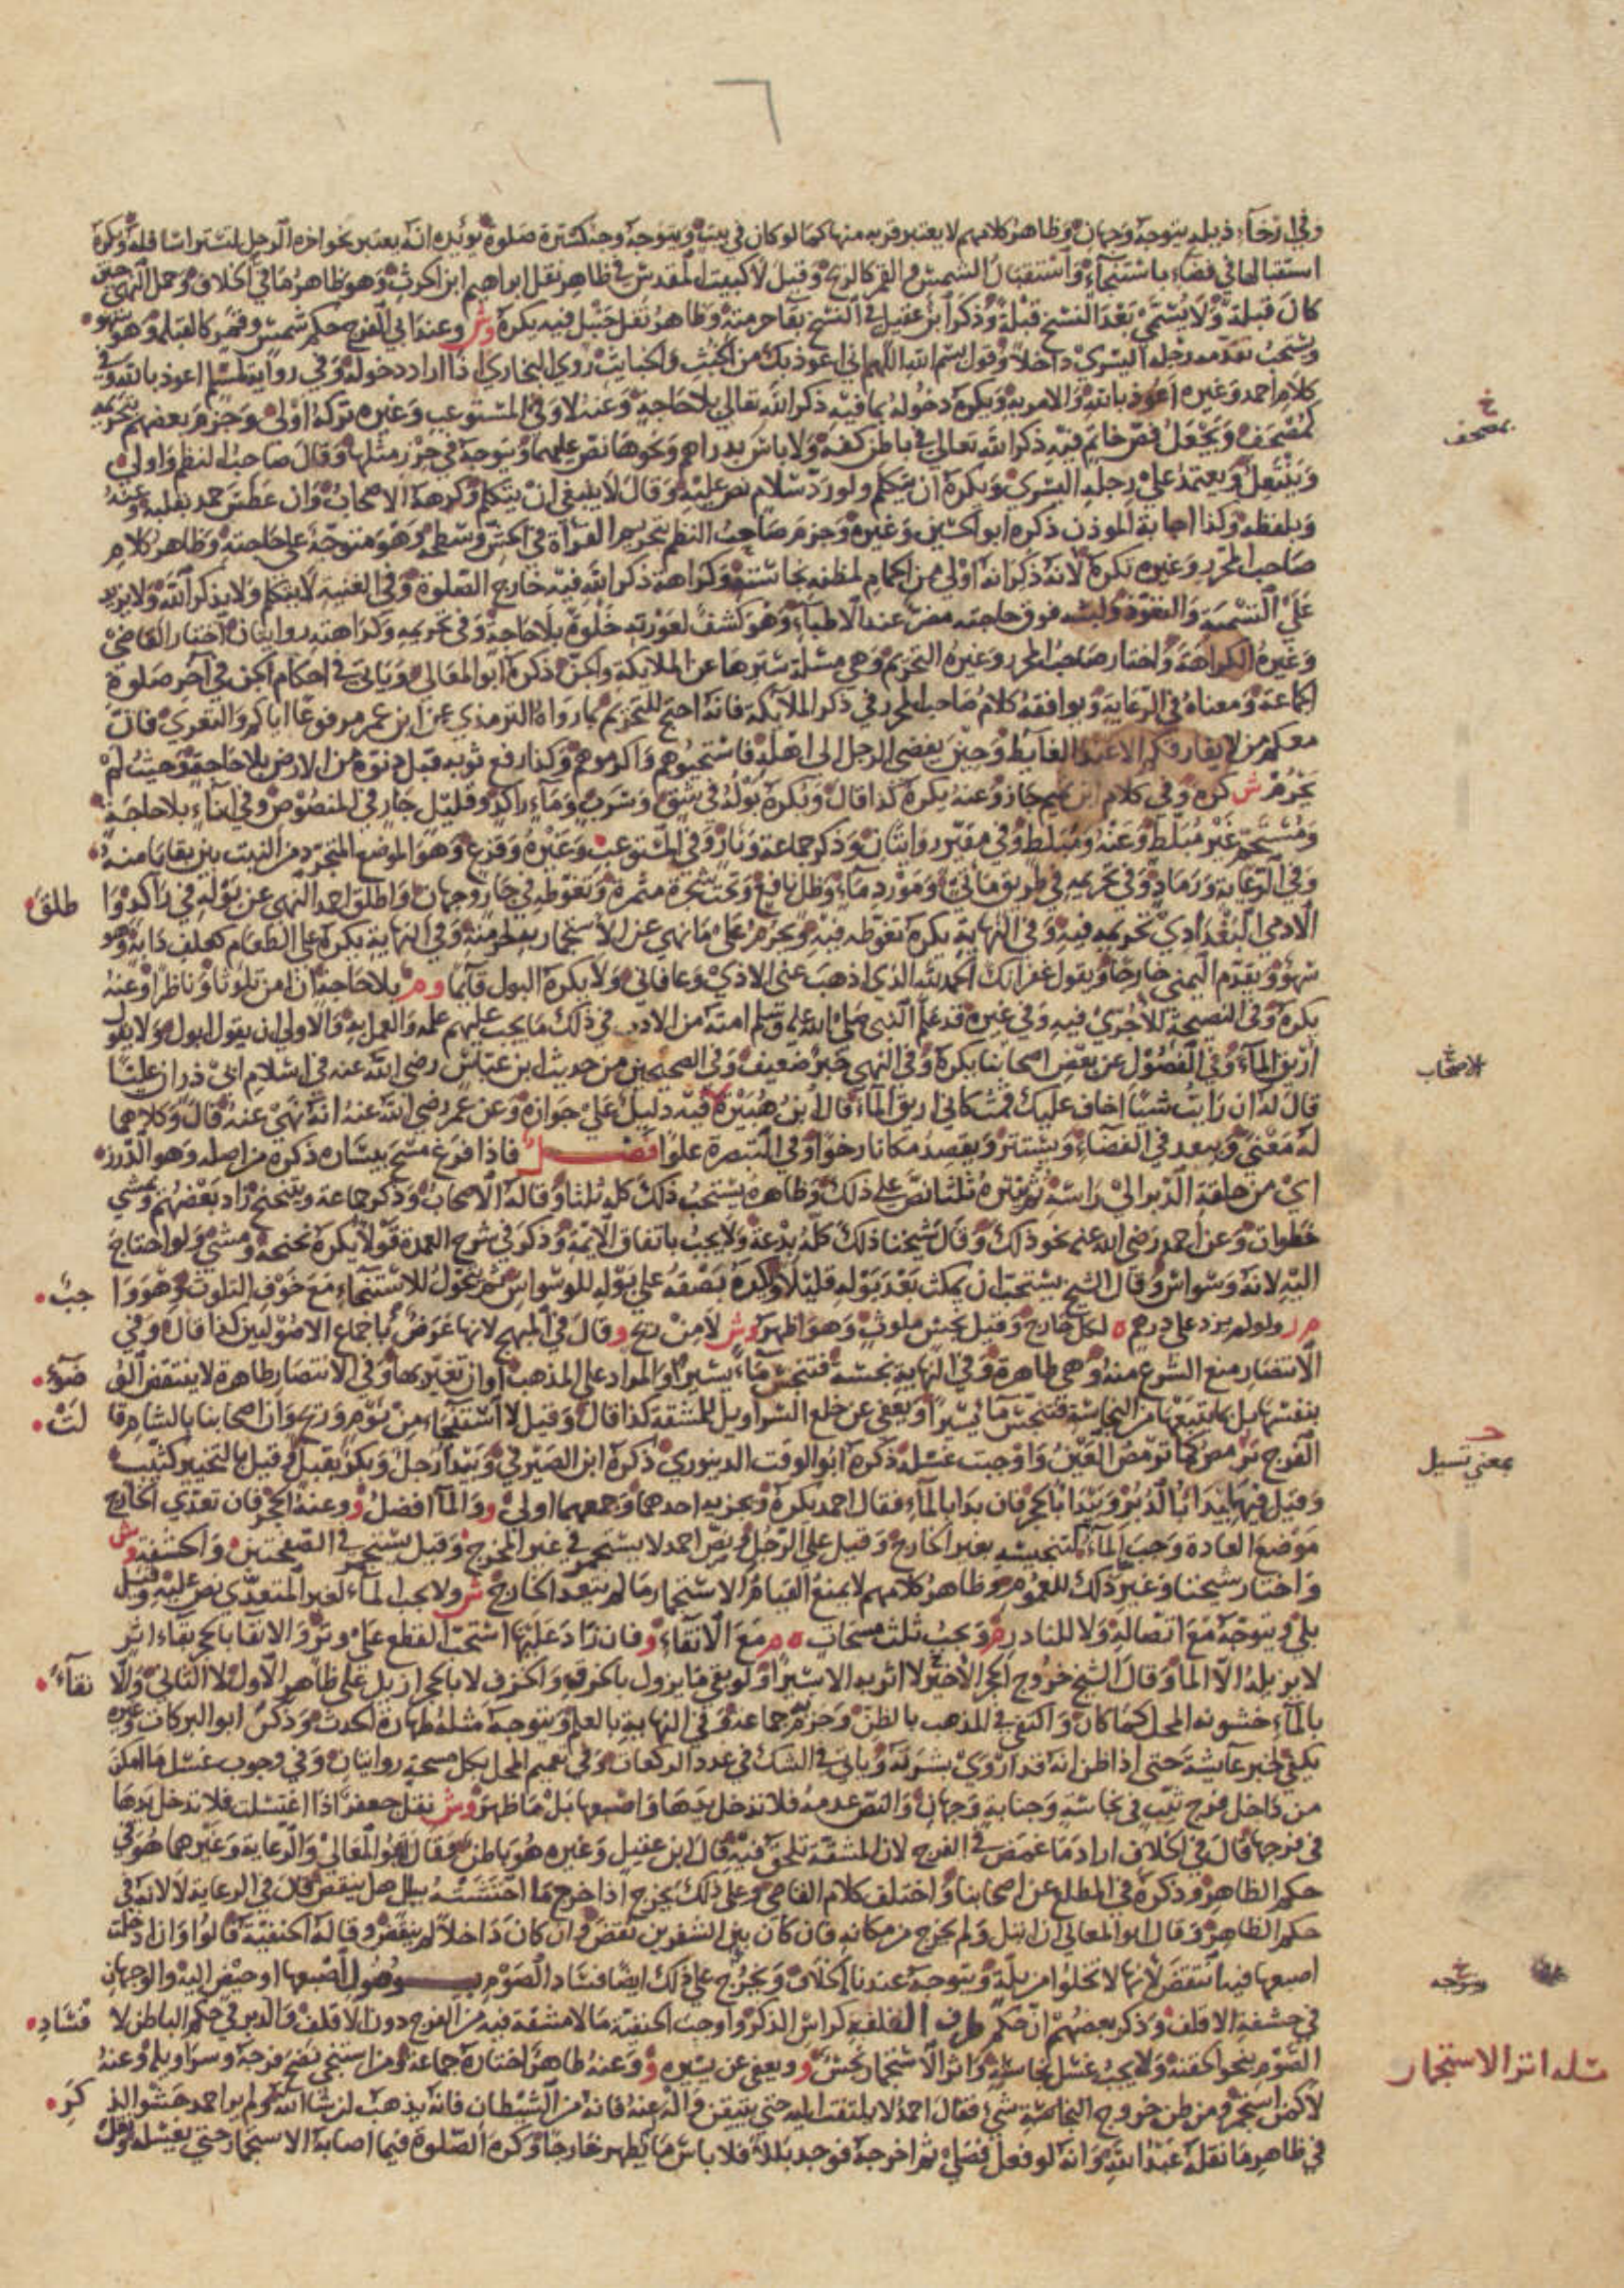 وفي ارخاء ذيله يتوجه وجهان وظاهر كلامهم لا يعتبر قربه منها كما لو كان في بيت ويتوجه وجه كسترة صلوة يؤيده انه يعتبر نحو اخرة الرحل لتستر اسافله ويكره
استقبالها في فضاء باستنجاء واستقبال الشمس والقمر كالريح وقيل لا كبيت المقدس في ظاهر نقل ابراهيم ابن الحرث وهو ظاهر ما في الخلاف وحمل النهي حين
كان قبلة ولا يسمى بعد النسخ قبلة وذكر ابن عقيل في النسخ بقاء حرمته وظاهر نقل حنبل فيه يكره وش وعند ابي الفرج حكم شمس وقمر كالقبلة وهو سهو
ويستحب تقدمه رجله اليسرى داخلا وقول بسم الله اللهم اني اعوذ بك من الخبث والخبايث روى البخاري اذا اراد دخوله وفي رواية لمسلم اعوذ بالله وفي
كلام احمد وغيره اعوذ بالله والامر به ويكره دخوله بما فيه ذكر الله تعالى بلا حاجة وعنه لا وفي المستوعب وغيره تركه اولى وجزم بعضهم بتحريمه
كمصحف ويجعل فص خاتم فيه ذكر الله تعالى في باطن كفه ولا باس بدراهم ونحوها نص عليهما ويتوجه في حرز مثلها وقال صاحب النظم واولى
وينتعل ويعتمد على رجله اليسرى ويكره ان يتكلم ولو رد سلام نص عليه وقال لا ينبغي ان يتكلم وكرهه الاصحاب وان عطس حمد بقلبه وعنه
وبلفظه وكذا اجابة الموذن ذكره ابو الحسين وغيره وجزم صاحب النظم بتحريم القرأة في الحش وسطحه وهو متوجه على حاجته وظاهر كلام
صاحب المحرر وغيره تكره لانه ذكر انه اولى من الحمام لمظنه نجاسته وكراهة ذكر الله فيه خارج الصلوة وفي الغنية لا يتكلم ولا يذكر الله ولا يزيد
على التسمية والتعوذ ولبثه فوق حاجته مضر عند الاطباء وهو كشف لعورته خلوة بلا حاجة وفي تحريمه وكراهته روايتان اختار القاضي
وغيره الكراهة واختار صاحب المحرر وغيره التحريم وهي مسئلة سترها عن الملايكة والجن ذكره ابو المعالي وياتي في احكام الجن في آخر صلوة
الجماعة ومعناه في الرعاية ويوافقه كلام صاحب المحرر في ذكر الملائكة فانه احتج للتحريم بما رواه الترمذي عن ابن عمر مرفوعا اياكم والتعري فان
معكم من لا يفارقكم الا عند الغايط وحين يفضي الرجل الى اهله فاستحيوهم واكرموهم وكذا رفع ثوبه قبل دنوه من الارض بلا حاجة وحيث لم
يحرم ش كره وفي كلام ابن تميم جاز وعنه يكره كذا قال ويكره بوله في شق وسرب وماء راكد وقليل جار في المنصوص وفي اناء بلا حاجة
ومستحم غير مبلط وعنه ومبلط وفي مقير روايتان وذكر جماعة ونار وفي المستوعب وغيره وقزع وهو الموضع المتجرد من النبت بين بقايا منه
وفي الرعاية ورماد وفي تحريمه في طريق ماتي ومورد ماء وظل نافع وتحت شجرة مثمرة وتغوطه في جار وجهان واطلق احمد النهي عن بوله في راكد وا طلق
الادمي البغدادي تحريمه فيه وفي النهاية يكره تغوطه فيه ويحرم على ما نهي عن الاستجمار به لحرمته وفي النهاية يكره على الطعام كعلف دابة وهو
سهو ويقدم اليمنى خارجا ويقول غفرانك الحمد لله الذي اذهب عني الاذى وعافاني ولا يكره البول قائما وم بلا حاجة ان امن تلوثا وناظرا وعنه
يكره وفي النصيحة للآجري فيه وفي غيره قد علم النبي صلى الله عليه وسلم امته من الادب في ذلك ما يجب عليهم علمه والعمل به والاولى ان يقول ابول ولا يقول
اريق الماء وفي الفصول عن بعض اصحابنا يكره وفي النهي خبر ضعيف وفي الصحيحين من حديث ابن عباس رضي الله عنه في اسلام ابي ذر ان عليا
قال له ان رايت شيئا اخاف عليك قمت كاني اريق الماء قال ابن هبيرة فيه دليل على جوازه وعن عمر رضي الله عنه انه نهى عنه قال وكلاهما
له معنى ويبعد في الفضاء ويستتر ويقصد مكانا رخوا وفي التبصرة علوا فصل فاذا فرغ مسح بيساره ذكره من اصله وهو الدرز
اي من حلقة الدبر الى راسه ثم ينتره ثلثا نص على ذلك وظاهره يستحب ذلك كله ثلثا وقاله الاصحاب وذكر جماعة ويتنحنح زاد بعضهم ويمشي
خطوات وعن احمد رضي الله عنه نحو ذلك وقال شيخنا ذلك كله بدعة ولا يجب باتفاق الائمة وذكر في شرح العمدة قولا يكره نحنحة ومشي ولو احتاج
اليه لانه وسواس وقال الشيخ يستحب ان يمكث بعد بوله قليلا ويكره بصقه على بوله للوسواس ثم يتحول للاستنجاء مع خوف التلوث وهو وا جب
م ر ولو لم يزد على درهم ه لكل خارج وقيل نجس ملوث وهو اظهر وش لا من ريح و قال في المبهج لانها عرض باجماع الاصوليين كذا قال وفي
الانتصار منع الشرع منه وهي طاهرة وفي النهاية نجسة فتنجس ماء يسيرا والمراد على المذهب او ان تغير بها وفي الانتصار طاهرة لا ينتقض الو ضوء
بنفسها بل بما يتبعها من النجاسة فتنجس ماء يسيرا ويعفى عن خلع السراويل للمشقة كذا قال وقيل لا استنجاء من نوم وريح وان اصحابنا بالشام قا لت
الفرج ترمص كما ترمص العين واوجبت غسله ذكره ابو الوقت الدينوري ذكره ابن الصيرفي ويبدا رجل وبكر بقبل وقيل بالتخيير كثيب
وقيل فيها يبدا بالدبر ويبدا بالحجر فان بدا بالماء فقال احمد يكره ويجزيه احدهما وجمعهما اولى و والماء افضل و وعنه الحجر فان تعدى الخارج
موضع العادة وجب الماء كتنجيسه بغير الخارج وقيل على الرجل ونص احمد لا يستجمر في غير المخرج وقيل يستجمر في الصفحتين والحشفة وش
واختار شيخنا وغير ذلك للعموم وظاهر كلامهم لا يمنع القيام الاستجمار ما لم يتعد الخارج ش ولا يجب الماء لغير المتعدي نص عليه وقيل
بلى ويتوجه مع اتصاله ولا للنادر م ويجب ثلث مسحات ه م مع الانقاء و فان زاد عليها استحب القطع على وتر والانقا بالحجر بقاء اثر
لا يزيله الا الماء وقال الشيخ خروج الحجر الاخير لا اثر به الا يسيرا ولو بقي ما يزول بالخرق والخزف لا بالحجر ازيل على ظاهر الاول لا الثاني والا نقاء
بالماء خشونة المحل كما كان واكتفي في المذهب بالظن وجزم به جماعة وفي النهاية بالعلم ويتوجه مثله طهارة الحدث وذكر ابو البركات وغيره
يكفي لخبر عايشة حتى اذا ظن انه قد اروى بشرته وياتي في الشك في عدد الركعات وفي تعميم المحل بكل مسحة روايتان وفي وجوب غسل ما امكن
من داخل فرج ثيب في نجاسة وجنابة وجهان والنص عدمه فلا تدخل يدها واصبعها بل ما ظهر وش نقل جعفر اذا اغتسلت فلا تدخل يدها
في فرجها قال في الخلاف اراد ما غمض في الفرج لان المشقة تلحق فيه قال ابن عقيل وغيره هو باطن وقال ابو المعالي والرعاية وغيرهما هو في
حكم الظاهر وذكره في المطلع عن اصحابنا واختلف كلام القاضي وعلى ذلك يخرج اذا خرج ما احتشته ببلل هل ينقض قال في الرعاية لا لانه في
حكم الظاهر وقال ابو المعالي ان ابتل ولم يخرج من مكانه فان كان بين الشفرين نقض وان كان داخلا لم ينقض وقاله الحنفية قالوا وان ادخلت
اصبعها فيه انتقض لانها لا تخلوا من بلة ويتوجه عندنا الخلاف ويخرج على ذلك ايضا فساد الصوم بوصول اصبعها او حيض اليه والوجهان
في حشفة الاقلف وذكر بعضهم ان حكم طرف القلفة كراس الذكر واوجب الحنفية ما لا مشقة فيه من الفرج دون الاقلف والدبر في حكم الباطن لا فساد
الصوم بنحو الحقنة ولا يجب غسل نجاسته واثر الاستجمار نجس و ويعفى عن يسيره و وعنه طاهر اختاره جماعة ومن استنجى نضح فرجه وسراويله وعنه
لا كمن استجمر ومن ظن خروج شيء فقال احمد لا يلتفت اليه حتى يتيقن واله عنه فانه من الشيطان فانه يذهب ان شا الله ولم ير احمد حشو الذ كر
في ظاهر ما نقله عبد الله وانه لو فعل فصلى ثم اخرجه فوجد بللا فلا باس ما لم يظهر خارجا وكره الصلوة فيما اصابه الاستجمار حتى يغسله ونقل
بمصحف خ
الاصحاب
بمعنى تسيل
ويتوجه
مسئلة اثر الاستجمار